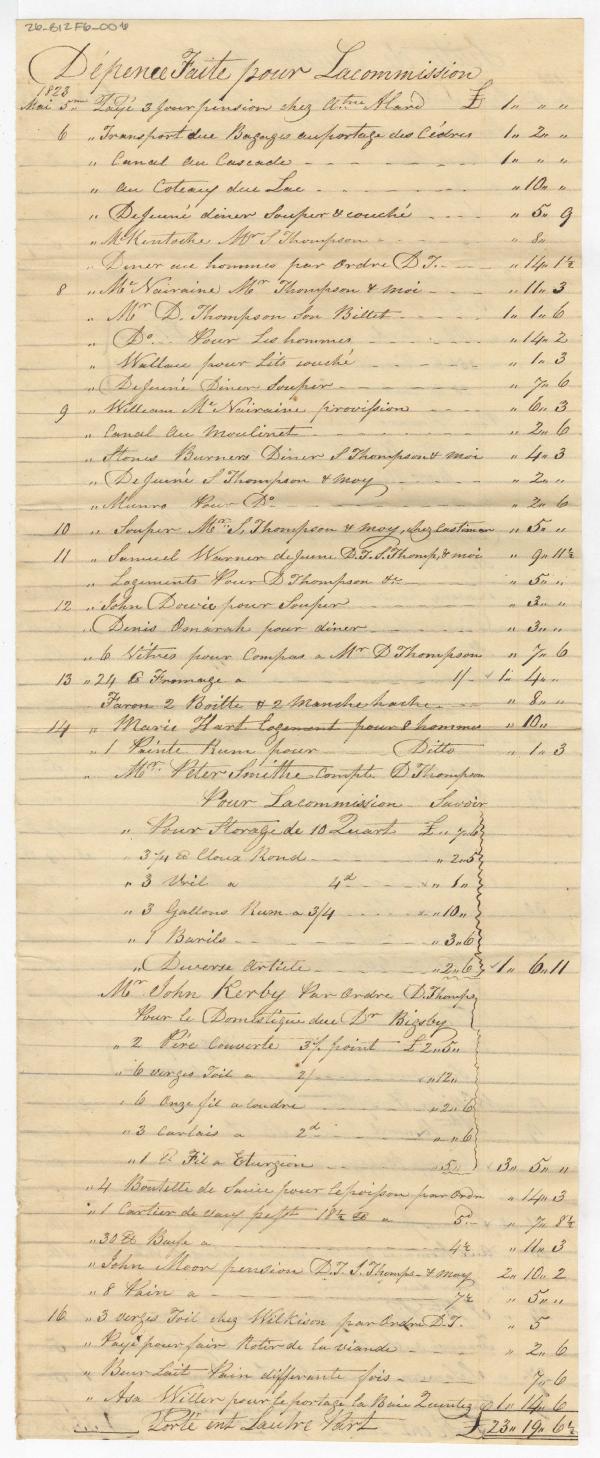 26-B12F6-008
Dépence Faite pour Lacommission
1823
Mai 5me Payé 3 Jour pension chez Atne Alard £ 1 " " "
6 " Transport due Bagages au portage des Cédres 1 " 2 " "
" Canal au Cascade 1 " " "
" au Coteau due Lac " 10 " "
" Dejeuné diner Souper & couché " 5 " 9
" McKintoche Mr S Thompson " 8 "
" Diner au hommes par Ordre D T. " 14 " 1½
8 " Mc Nairaine Mr Thompson & moi " 11 " 3
" Mr D. Thompson Son Billet 1 " 1 " 6
" Do Pour Les hommes " 14 " 2
" Wallace pour Lits couché " 1 " 3
" Dejeuné Diner Souper " 7 " 6
9 " William Mc Nairaine provision " 6 " 3
" Canal au Moulinet " 2 " 6
" Stones Burners Diner S Thompson & moi " 4 " 3
" Dejeuné S Thompson & moy " 2 " "
" Munro Pour Do " 2 " 6
10 " Souper Mr S, Thompson & moy, chez Lastman " 5 " "
11 " Samuel Warner dejune D. T. S. Thomp, & moi " 9 " 11½
" Logements Pour D Thompson &c " 5 " "
12 " John Dowie pour Souper " 3 " "
" Denis Omarah pour diner " 3 " "
" 6 Vitres pour Compas a Mr D Thompson " 7 " 6
13 " 24 lb Fromage a 1/- 1 " 4 " "
Faron 2 Boitte & 2 Manche hache " 8 " "
14 " Marie Hart Logement pour 8 hommes " 10 "
" 1 Painte Rum pour Ditto " 1 " 3
" Mr. Peter Smithe Compte D Thompson
Pour Lacommission Savoir
" Pour Storage de 10 Quart £ " 7 " 6
" 3¼ lb Cloux Rond " 2 " 5
" 3 Vril a 4d " 1 "
" 3 Gallons Rum a 3/4 " 10 "
" 1 Barils " 3 " 6
" Diverse Article " 2 " 6 1 " 6 " 11
Mr John Kerby Par Ordre D. Thomps
Pour le Domestique due Dr Bigsby
" 2 Pére Couverte 3½ point £ 2 " 5 "
" 6 verges Toil a 2/ " 12 "
" 6 Onze fil a Coudre " 2 " 6
" 3 Carlais a 2d " " 6
" 1 lb Fil a Eturgion " 5 " 3 " 5 " "
" 4 Boutelle de Sauce pour Lepoisson par Ordr " 14 " 3
" 1 Cartier de vaux 18½ lb a 5d " 7 " 8½
" 30 lb a 4½ " 11 " 3
" John Moor pension D. T. S. Thomps & moy 2 " 10 " 2
" 8 Pain a 7½ " 5 " "
16 " 3 verges Toil chez Wilkison par Ordre D. T. " 5
" Payé pour fair Rotir de la viande " 2 " 6
" Beur Lait Pain differante fois " 7 " 6
" Asa Willer pour le portage la Baie Quintez 1 " 14 " 6
Porté ent Lautre Part £ 23 " 19 " 6½